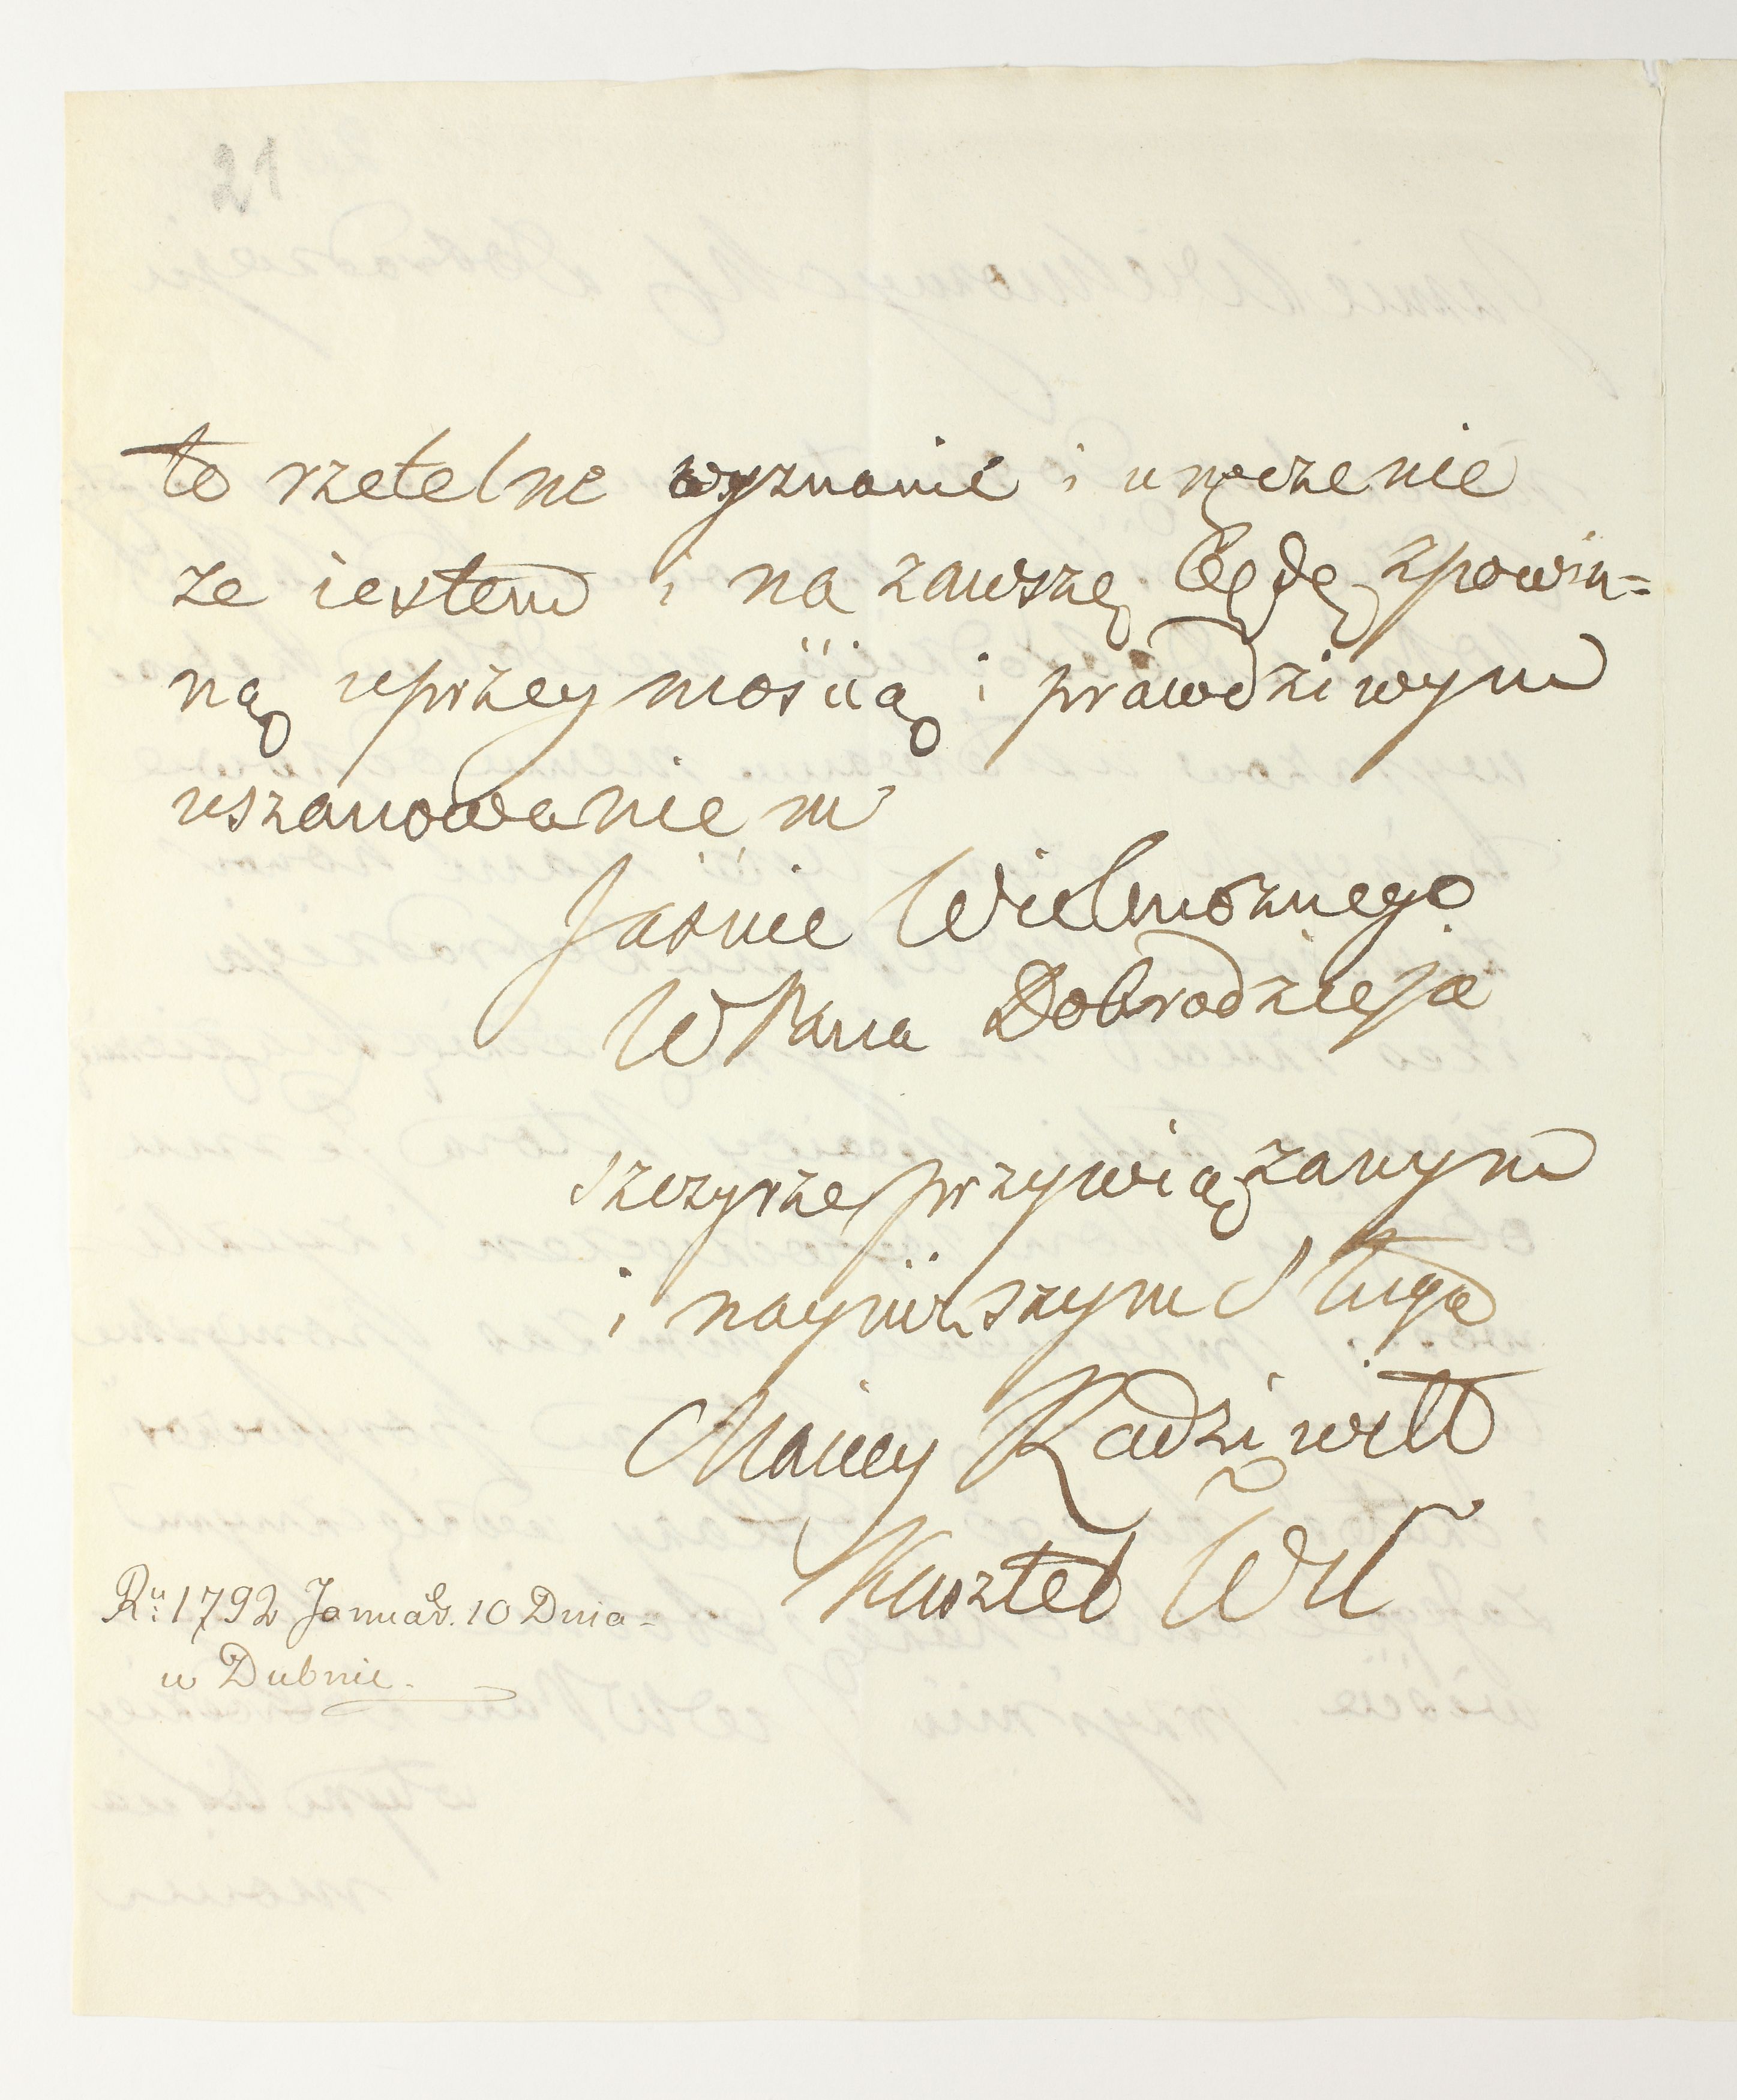 21
to rzetelne wyznanie i uręczenie
ze iestem i na zawszę będę zpowin=
ną uprzeymośiią i prawdziwym
uszanowaniem
Jasnie Wielmożnego
WPana Dobrodzieja
szczyrze przywiązanym
i nayniższym Sługą
Maciey Radziwiłł
Kasztel Wil
Ru 1792 Januar. 10 Dnia
w Dubnie.